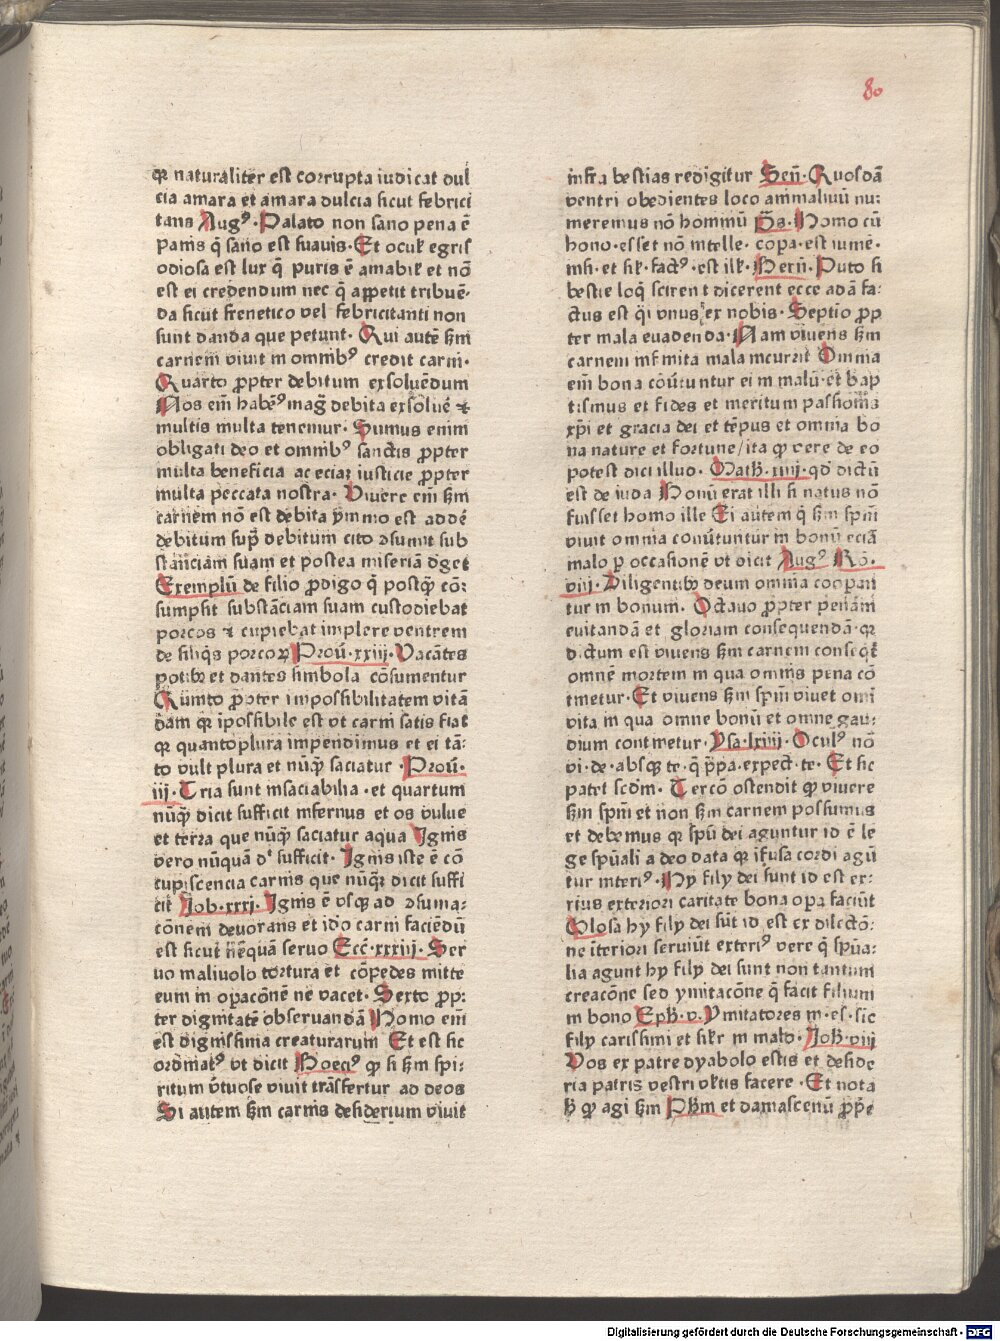 80
qꝛ naturaliter est corrupta iudicat dul
cia amara et amara dulcia sicut febrici
tans Augꝰ · Palato non sano pena ē
panis q̄ sano est suauis · Et oculꝭ egris
odiosa est lux q̄ puris ē amabilꝭ et nō
est ei credendum nec q̄ appetit tribuē-
da sicut frenetico vel febricitanti non
sunt danda que petunt · Qui autē s̄m
carnem viuit in omnibꝰ credit carni ·
Quarto ꝓpter debitum exsoluēdum
Nos em̄ habēꝰ maḡ debita exsoluē ⁊
multis multa tenemur · Sumus enim
obligati deo et omnibꝰ sanctis ꝓpter
multa beneficia ac eciaꝫ iusticie ꝓpter
multa peccata nostra · Viuere em̄ s̄m
carnem nō est debita ymmo est addē
debitum sup̄ debitum cito ↄsumit sub
stanciam suam et postea miseriā ꝯget
Exemplū de filio ꝓdigo q̄ postq̄ cō:
sumpsit substāciam suam custodiebat
porcos ⁊ cupiebat implere ventrem
de siliq̄s porcoꝝ Prou̅ · xxiij · Vacātes
potibꝫ et dantes simbola cōsumentur
Quinto ꝓpter impossibilitatem vitā
dam qꝛ īpossibile est vt carni satis fiat
qꝛ quanto plura impendimus et ei tā:
to vult plura et nūq̄ saciatur · Prou̅ ·
iii · Tria sunt insaciabilia · et quartum
nūq̄ dicit sufficit infernus et os vulue
et terra que nūq̄ saciatur aqua Ignis
vero nūquā dt sufficit · Ignis iste ē cō
cupiscencia carnis que nūq̄ dicit suffi
cit Job · xxxj · Ignis ē vsqꝫ ad ↄsuma-
cōnem deuorans et ido carni faciēdū
est sicut neq̄uā seruo Ecc̄ · xxxiij · Ser
uo maliuolo tortura et cōpedes mitte
eum in oꝑacōnē ne vacet · Sexto ꝓp:
ter dignitatē obseruandā Homo em̄
est dignissima creaturarum Et est sic
ordinatꝰ vt dicit Boeciꝰ ꝙ si s̄m spi:
ritum v̄tuose viuit trāsfertur ad deos
Si autem s̄m carnis desiderium viuit
infra bestias redigitur Sen̄ · Quosdā
ventri obedientes loco animaliuū nu:
meremus nō hominū Ps̄ · Homo cū
hono · esset nō intelle · copa · est iumē ·
insi · et silꝭ · factꝰ · est illꝭ · Bern̄ · Puto si
bestie loq̄ scirent dicerent ecce adā fa:
ctus est q̄i vnus ex nobis · Septīo ꝓp
ter mala euadenda · Nam viuens s̄m
carnem infinita mala incurrit Omnia
em̄ bona cōūtuntur ei in malū · et bap
tismus et fides et meritum passionis
xp̄i et gracia dei et tēpus et omnia bo
na nature et fortune / ita ꝙ vere de eo
potest dici illud · Math̄ · xxvi · qd̄ dictū
est de iuda Bonū erat illi si natus nō
fuisset homo ille Ei autem q̄ s̄m sp̄m
viuit omnia conūtuntur in bonū eciā
malo ꝑ occasionē vt dicit Augꝰ Ro̅ ·
viij · Diligentibꝫ deum omnia cooꝑan
tur in bonum · Octauo ꝓpter penam
euitandā et gloriam consequendā · qꝛ
dictum est viuens s̄m carnem conseqt̄
omnē mortem in qua omnis pena cō
tinetur · Et viuens s̄m sp̄m viuet om̄i
vita in qua omne bonū et omne gau:
dium continetur · Ysa · lxiiij · Oculꝰ nō
vi · de · absqꝫ te · q̄ p̄pa · expect̄ · te · Et sic
patet scd̄m · Tercō ostendit ꝙ viuere
s̄m sp̄m et non s̄m carnem possumus
et debemus qꝛ spū dei aguntur id ē le
ge spūali a deo data qꝛ īfusa cordi agū
tur interiꝰ · Hy filij dei sunt id est ex:
rius exteriori caritate bona oꝑa faciūt
Glosa hy filij dei sūt id est ex dilectō:
ne īteriori seruiūt exteriꝰ vere q̄ spūa:
lia agunt hy filij dei sunt non tantum
creacōne sed ymitacōne q̄ facit filium
in bono Eph̄ · v · Ymitatores m · es̄ · sic
filij carissimi et silꝭr in malo · Joh̄ · viij
Vos ex patre dyabolo estis et deside
ria patris vestri vltis facere · Et nota
h̄ ꝙ agi s̄m Ph̄m et damascenū ꝓp̄e
Digitalisierung gefördert durch die Deutsche Forschungsgemeinschaft · DFG